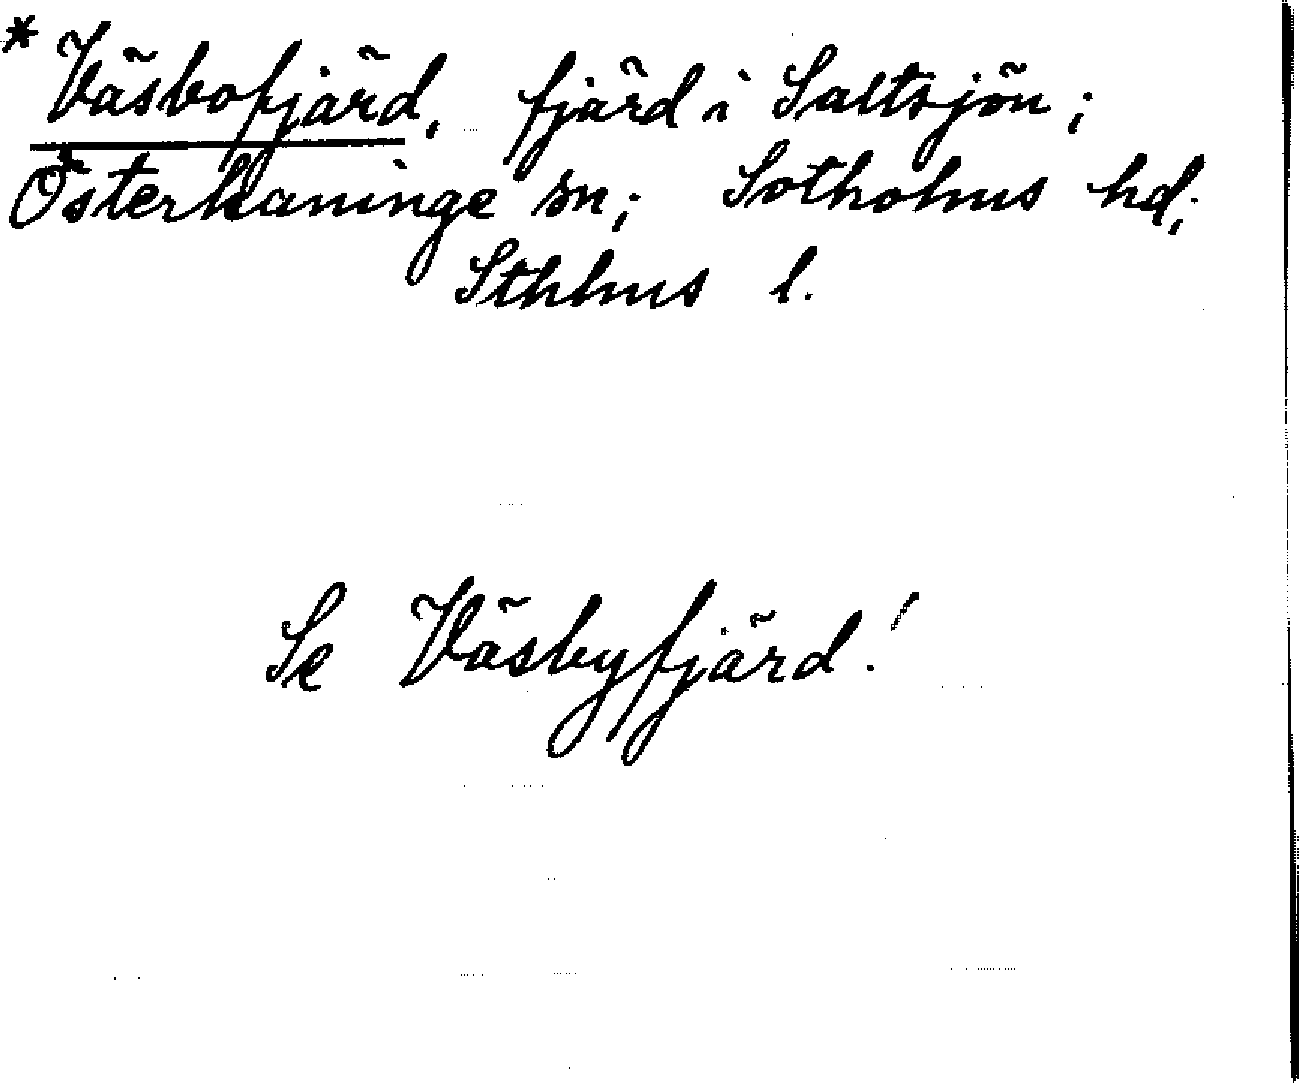 * Väsbofjärd, fjärd i Saltsjön;
Österhaninge sn; Sotholms hd;
Sthlms l.
Se Väsbyfjärd!